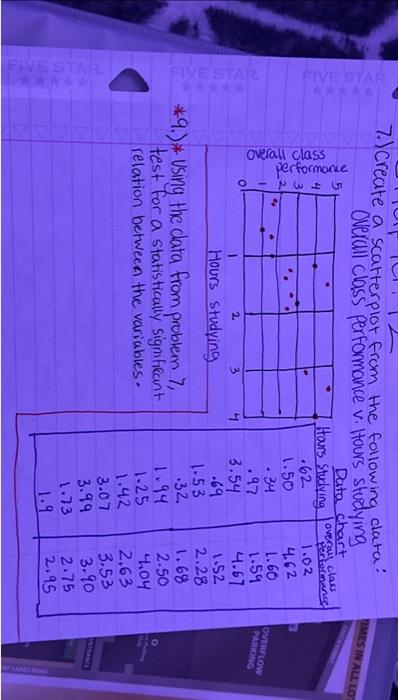 7.) Create a scatterplot from the following data:
Overall class performance v. Hours studying
Data chart
Hours studying overall class performance
.62 1.02
1.50 4.62
.34 1.60
.97 1.59
3.54 4.67
.69 1.52
1.53 2.28
.32 1.68
1.44 2.50
1.25 4.04
1.42 2.63
3.07 3.53
3.99 3.90
1.73 2.75
1.9 2.95
overall class
performance
5
4
3
2
1
0
1 2 3 4
Hours studying
*9.)* Using the data from problem 7,
test for a statistically significant
relation between the variables.
FIVE STAR
FIVE STAR
FIVE STAR
OVERFLOW
PARKING